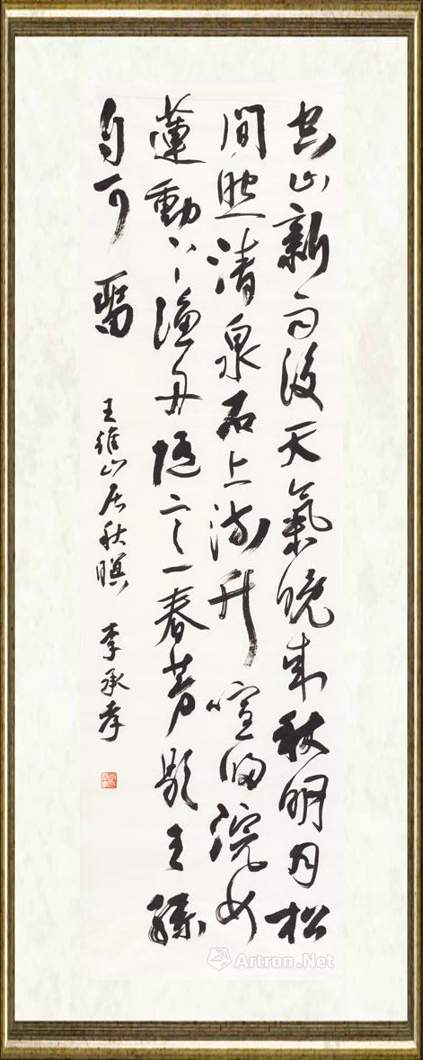 空山新雨後天氣晚來秋明月松
間照清泉石上流竹喧歸浣女
蓮動下漁舟隨意春芳歇王孫
自可留
王維山居秋暝 李承孝
Artron.Net